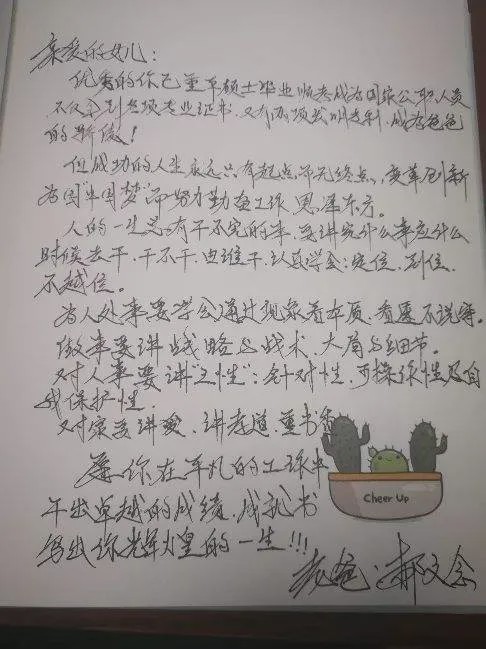 亲爱的女儿:
优秀的你已重本硕士毕业顺考成为国家公职人员
不仅拿到各项专业证书,又有两项发明专利,成为爸爸
的骄傲!
但成功的人生永远只有起点而无终点,变革创新
为国"中国梦"而努力勤奋工作
人的一生总有干不完的事,要讲究什么事应什么
时候去干,干不干,由谁干,认真学会:定位、到位、
不越位。
为人处事要学会通过现象看本质,看透不说穿。
做事要讲战略与战术,大局与细节。
对人事要讲"三性":针对性,可操作性及自
我保护性.
对家要讲爱,讲孝道,重书香
愿你在平凡的工作中
干出卓越的成绩,成就书
写出你辉煌的一生!!!
Cheer Up
老爸:郝文